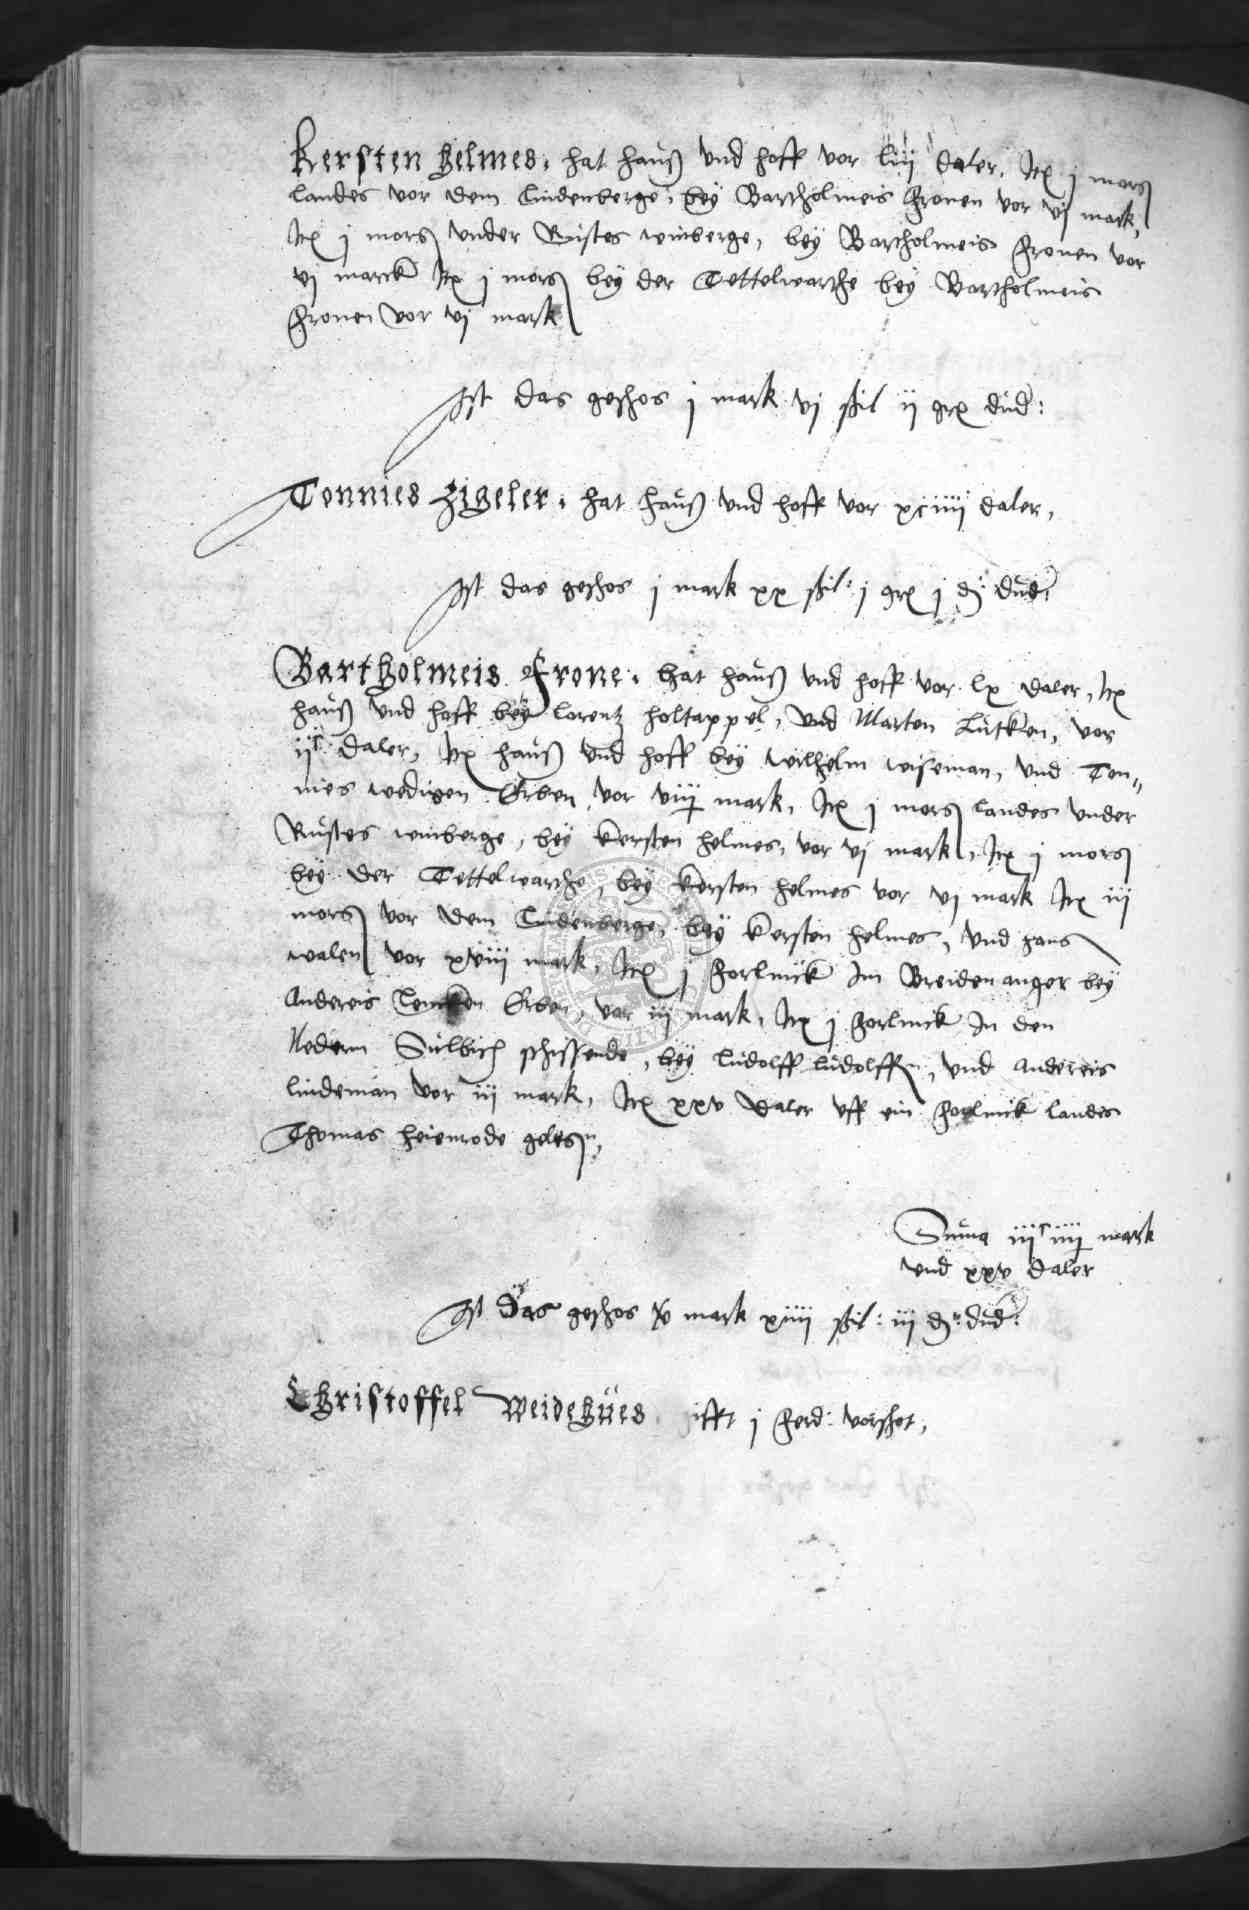 Kersten Helmes. hat hauß vnd hoff vor liij daler, Itm j morg
landes vor dem Lindenberge, bey Bartholmeis Fronen vor vj mark,
Itm j morg vnder Rustes winberge, bey Bartholmeis Fronen vor
vj marck Itm j morg bey der Tettelwarthe bey Bartholmeis
Fronen vor vj mark
Ist das geschos j mark vj ßil ij gr dud:
Tonnies Zigeler. hat hauß vnd hoff vor xciiij daler,
Ist das geschos j mark xx ßil: j gr j d: dud:
Bartholmeis Frone. hat hauß vnd hoff vor lx daler, Itm
hauß vnd hoff bey Lorentz Holtappel, vnd Marten Lutken, vor
ijc daler, Itm hauß vnd hoff bey Wilhelm Wiseman, vnd Ton„
nies Wedigen Erben, vor mark, Itm j morg landes vnder
Rustes winberge, bey Kersten Helmes, vor vj mark, Itm j morg
bey der Tettelwarthe, bey Kersten Helmes vor vj mark Itm iij
morg vor dem Lindenberge, bey Kersten Helmes, vnd Hans
Walen vor xviij mark, Itm j Forlinck Im Breidenanger bey
Andereis Erben, vor iij mark, Itm j Forlinck In den
Nedern Sulbich schissende, bey Ludolff Ludolffen, vnd Andereis
Lindeman vor iij mark, Itm xxv daler vff ein Forlinck landes
Thomas Heienrode gelesn,
Suma iijc mark
vnd xxv daler
Ist das geschos v mark xiiij ßil: iij d: dud:
Christoffel Weidehues gifft j Ferd: vorschot,